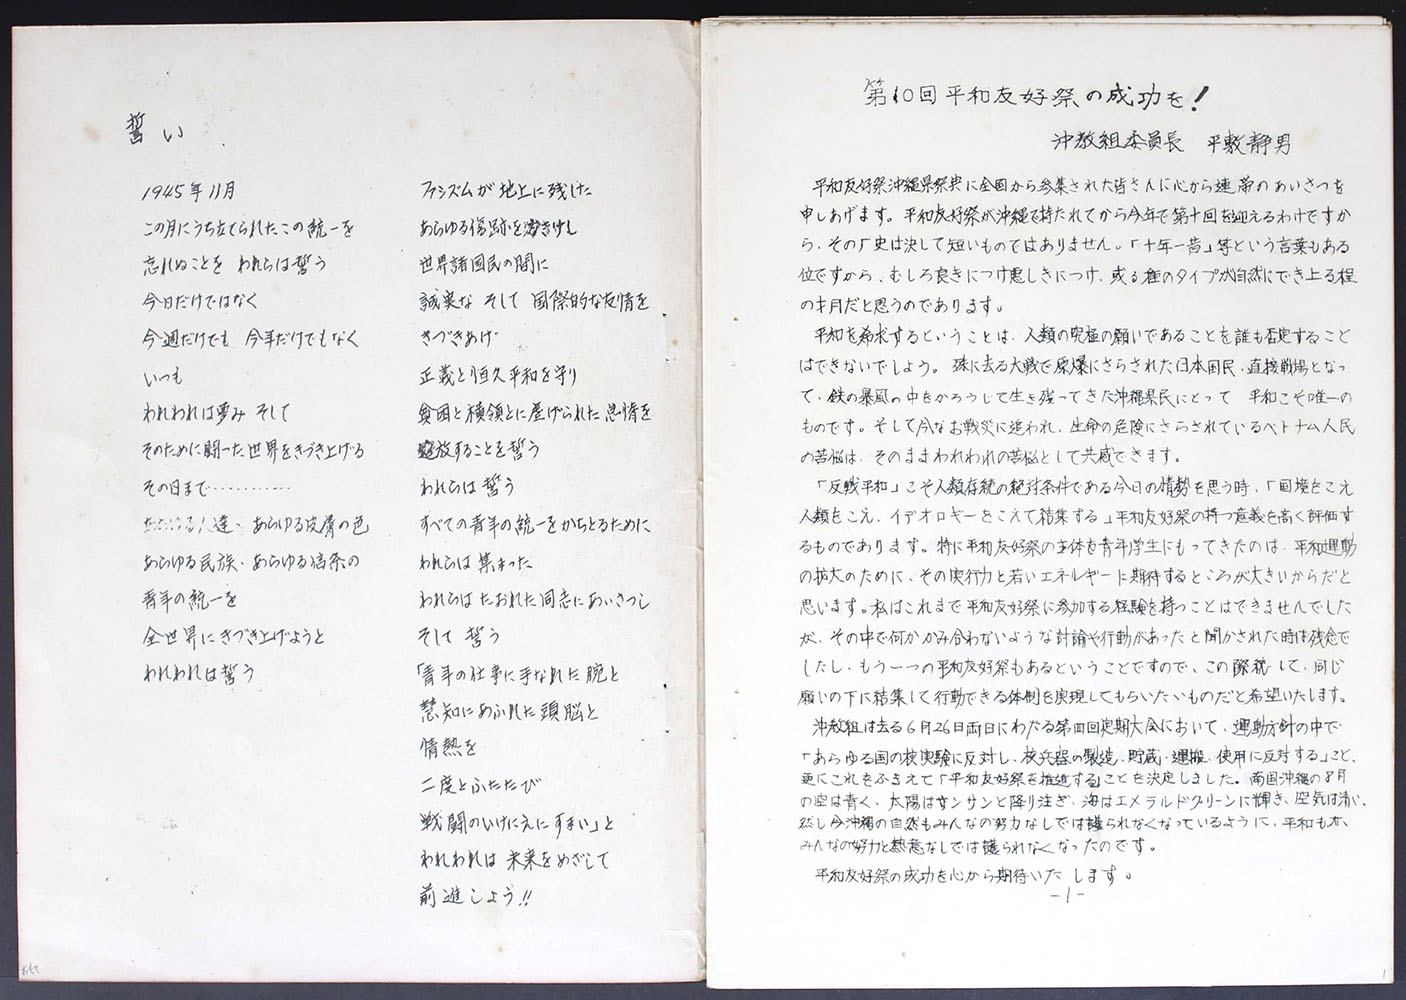 誓い
1945年11月
この月にうち立てられたこの統一を
忘れぬことを われらは誓う
今日だけではなく
今週だけでも、今年だけでもなく
いつも
われわれは夢み そして
そのために闘った世界をきづき上げる
その日まで…………
達、あらゆる皮膚の色
あらゆる民族、あらゆる信条の
青年の統一を
全世界にきづき上げようと
われわれは誓う
ファシズムが地上に残した
あらゆる傷跡を
世界諸国民の間に
誠実な そして 国際的な友情を
きづきあげ
正義と恒久平和を守り
貧困と横領とに虐げられた思情を
放することを誓う
われらは誓う
すべての青年の統一をかちとるために
われらは集まった
われらはたおれた同志にあいさつし
そして 誓う
「青年の仕事に手なれた腕と
慧知にあふれた頭脳と
情熱を
二度とふたたび
戦闘のいけにえにすまい」と
われわれは 未来をめざして
前進しよう!!
第10回平和友好祭の成功を!
沖教組委員長 平敷静男
平和友好祭沖縄県祭典に全国から参集された皆さんに心から連帯のあいさつを
申しあげます。平和友好祭が沖縄で持たれてから今年で第十回を迎えるわけですか
ら、その「史は決して短いものではありません。「十年一昔」等という言葉もある
位ですから、むしろ良きにつけ悪しきにつけ、或る種のタイプが自然にでき上る程
の才月だと思うのであります。
平和を希求するということは、人類の究極の願いであることを誰も否定すること
はできないでしょう。殊に去る大戦で原爆にさらされた日本国民、直接戦場となっ
て、鉄の暴風の中をかろうじて生き残ってきた沖縄県民にとって 平和こそ唯一の
ものです。そして今なお戦災に追われ、生命の危険にさらされているベトナム人民
の苦悩は、そのままわれわれの苦悩として共感できます。
「反戦平和」こそ人類存続の絶対条件である今日の情勢を思う時、「国境をこえ
人類をこえ、イデオロギーをこえて結集する」平和友好祭の持つ意義を高く評価す
るものであります。特に平和友好祭の主体を青年学生にもってきたのは、平和運動
の拡大のために、その実行力と若いエネルギーに期待するところが大きいからだと
思います。私はこれまで平和友好祭に参加する経験を持つことはできませんでした
が、その中で何かかみ合わないような討論や行動があったと聞かされた時は残念で
したし、もう一つの平和友好祭もあるということですので、この際統一して、同じ
願いの下に結集して行動できる体制を実現してもらいたいものだと希望いたします。
沖教組は去る6月26日両日にわたる第四回定期大会において、運動方針の中で
「あらゆる国の核実験に反対し、核兵器の製造、貯蔵、運搬、使用に反対する」こと、
更にこれをふまえて「平和友好祭を推進する」ことを決定しました。南国沖縄の8月
の空は青く、太陽はサンサンと降り注ぎ、海はエメラルドグリーンに輝き、空気は清い
然し今沖縄の自然もみんなの努力なしでは護られなくなっているように、平和も亦、
みんなの努力と熱意なしでは護られなくなったのです。
平和友好祭の成功を心から期待いたします。
-1-